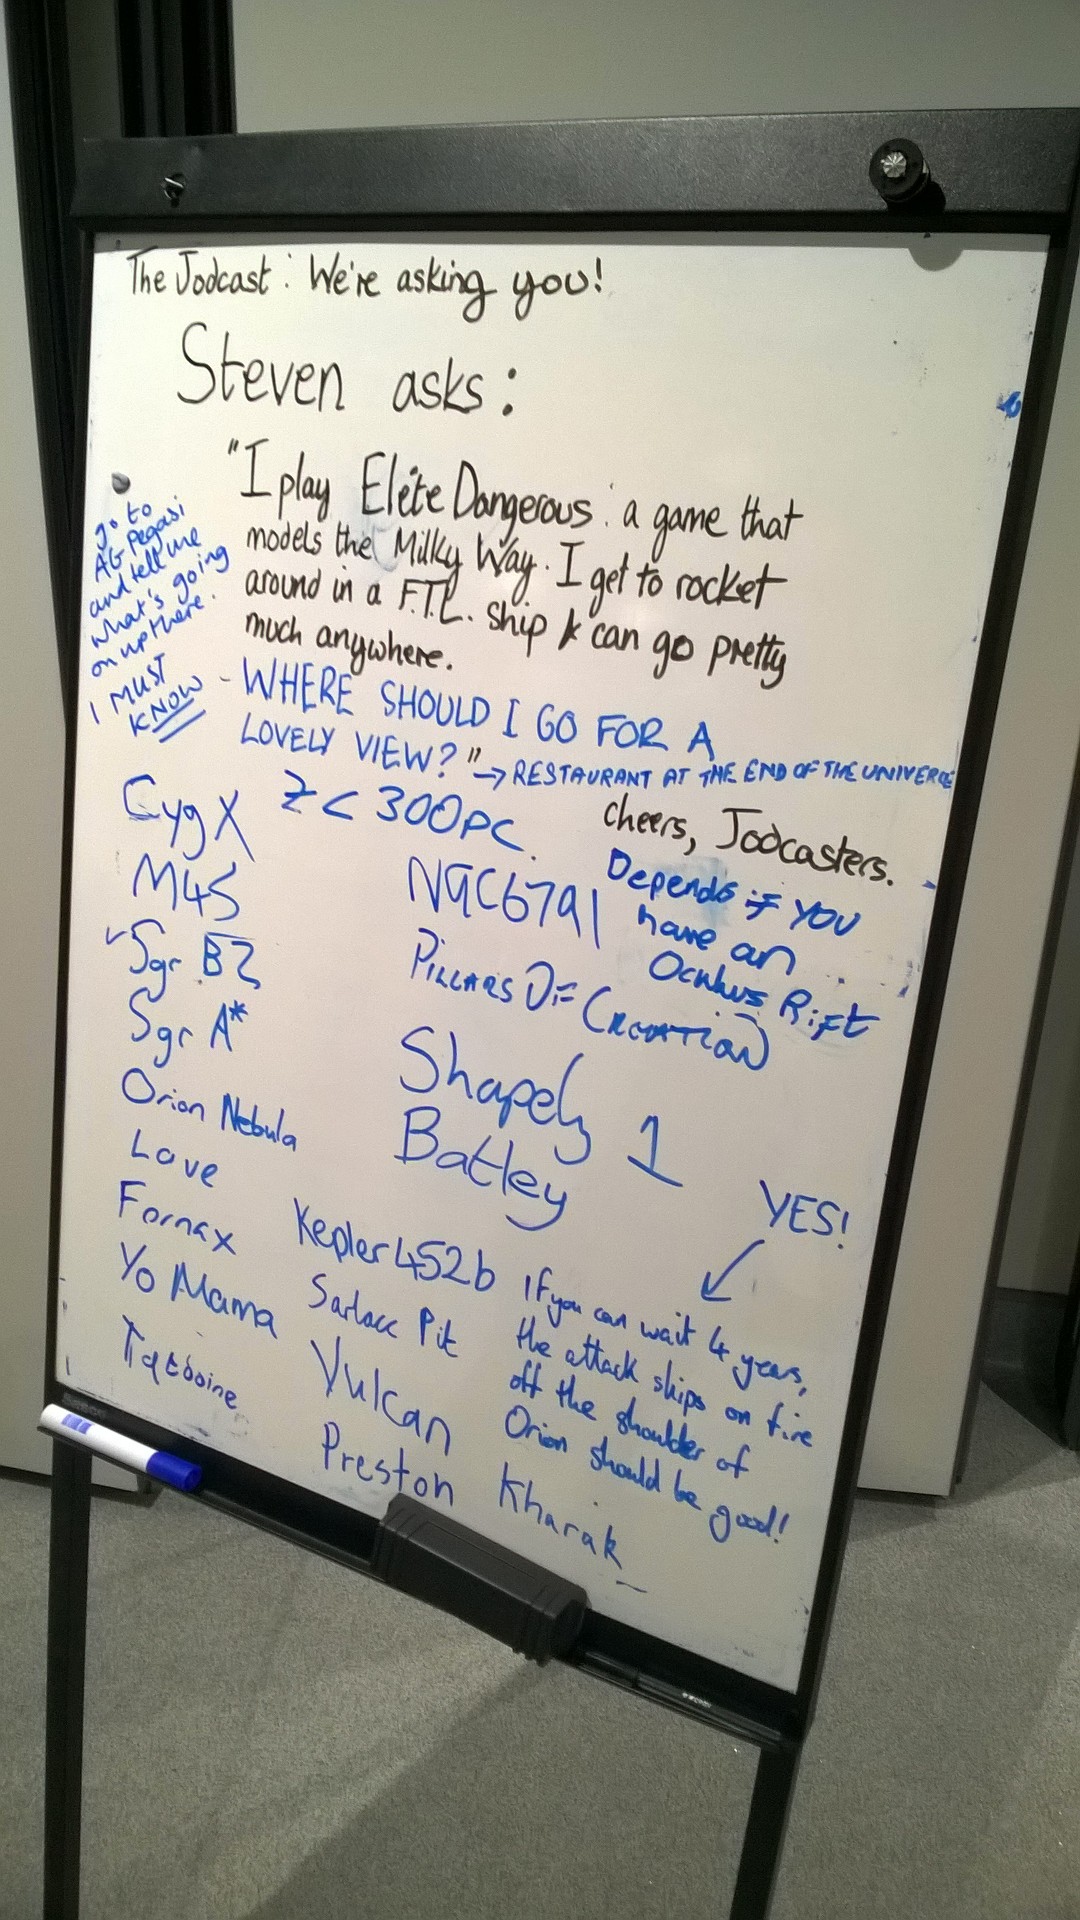 The Jodcast: We're asking you!
Steven asks:
"I play Elite Dangerous: a game that
models the Milky Way. I get to rocket
around in a F.T.L. ship & can go pretty
much anywhere.
- WHERE SHOULD I GO FOR A
LOVELY VIEW?"
→ RESTAURANT AT THE END OF THE UNIVERSE
cheers, Jodcasters.
go to
AG Pegasi
and tell me
what's going
on up there.
I MUST
KNOW
Z < 300pc.
Cyg X
M45
Sgr B2
Sgr A*
Orion Nebula
Love
Fornax
Yo Mama
Tatooine
NGC6791
PILLARS OF CREATION
Shapely 1
Batley
Kepler 452b
Sarlacc Pit
Vulcan
Preston
Depends if YOU
have an
Oculus Rift
YES!
If you can wait 4 years,
the attack ships on fire
off the shoulder of
Orion should be good!
Kharak